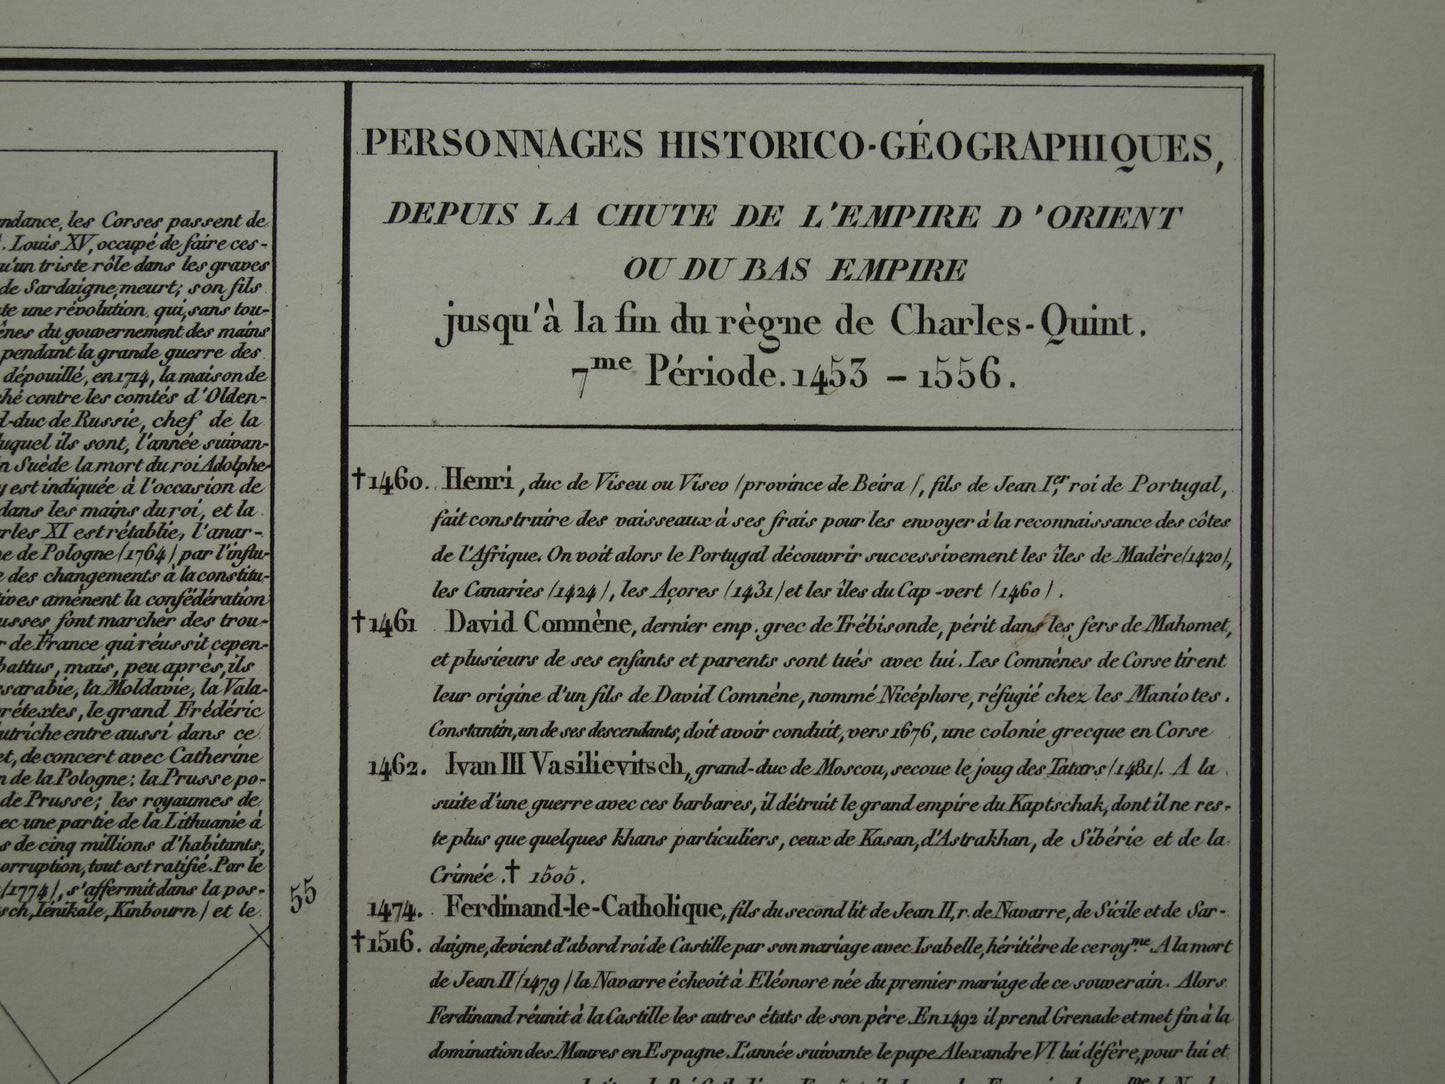 ndance, les Corses passent de
. Louis XV, occupé de faire ces-
qu'un triste rôle dans les graves
de Sardaigne, meurt; son fils
te une révolution, qui, sans tou-
ênes du gouvernement des mains
pendant la grande guerre des
dépouillé, en 1714, la maison de
ché contre les comtés d'Olden-
d-duc de Russie, chef de la
uquel ils sont, l'année suivan-
n Suède la mort du roi Adolphe-
y est indiquée à l'occasion de
dans les mains du roi, et la
rles XI est rétablie, l'anar-
e de Pologne (1764) par l'influ-
e des changements à la constitu-
tives amènent la confédération
usses, font marcher des trou-
r de France qui réussit cepen-
battus, mais, peu après, ils
sarabie, la Moldavie, la Vala-
rétextes, le grand Frédéric
utriche entre aussi dans ce
et, de concert avec Catherine
n de la Pologne: la Prusse po-
de Prusse; les royaumes de
ec une partie de la Lithuanie à
s de cinq millions d'habitants,
orruption, tout est ratifié. Par le
(1774), s'affermit dans la pos-
sch, Iénikale, Kinbourn) et le
55
PERSONNAGES HISTORICO-GÉOGRAPHIQUES,
DEPUIS LA CHUTE DE L'EMPIRE D'ORIENT
OU DU BAS EMPIRE
jusqu'à la fin du règne de Charles-Quint.
7me Période. 1453 – 1556.
†1460. Henri, duc de Viseu ou Viseo (province de Beira), fils de Jean Ier, roi de Portugal,
fait construire des vaisseaux à ses frais pour les envoyer à la reconnaissance des côtes
de l'Afrique. On voit alors le Portugal découvrir successivement les îles de Madère (1420),
les Canaries (1424), les Açores (1431) et les îles du Cap-vert (1460).
†1461 David Comnène, dernier emp. grec de Trébisonde, périt dans les fers de Mahomet,
et plusieurs de ses enfants et parents sont tués avec lui. Les Comnènes de Corse tirent
leur origine d'un fils de David Comnène, nommé Nicéphore, réfugié chez les Maniotes.
Constantin, un de ses descendants, doit avoir conduit, vers 1676, une colonie grecque en Corse
1462. Ivan III Vasilievitsch, grand-duc de Moscou, secoue le joug des Tatars (1481). A la
suite d'une guerre avec ces barbares, il détruit le grand empire du Kaptschak, dont il ne res-
te plus que quelques khans particuliers, ceux de Kasan, d'Astrakhan, de Sibérie et de la
Crimée. † 1505.
1474. Ferdinand-le-Catholique, fils du second lit de Jean II, r. de Navarre, de Sicile et de Sar-
†1516. daigne, devient d'abord roi de Castille par son mariage avec Isabelle, héritière de ce roy.me A la mort
de Jean II (1479) la Navarre échoit à Eléonore née du premier mariage de ce souverain. Alors
Ferdinand réunit à la Castille les autres états de son père. En 1492 il prend Grenade et met fin à la
domination des Maures en Espagne. L'année suivante le pape Alexandre VI lui défère, pour lui et